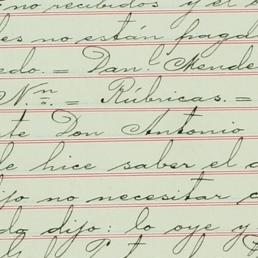 no recibidos y el
es no están paga
edo. = Dan.l Mende
N.n = Rúbricas. =
te Don Antonio
le hice saber el
ijo no necesitar
do dijo: lo oye y